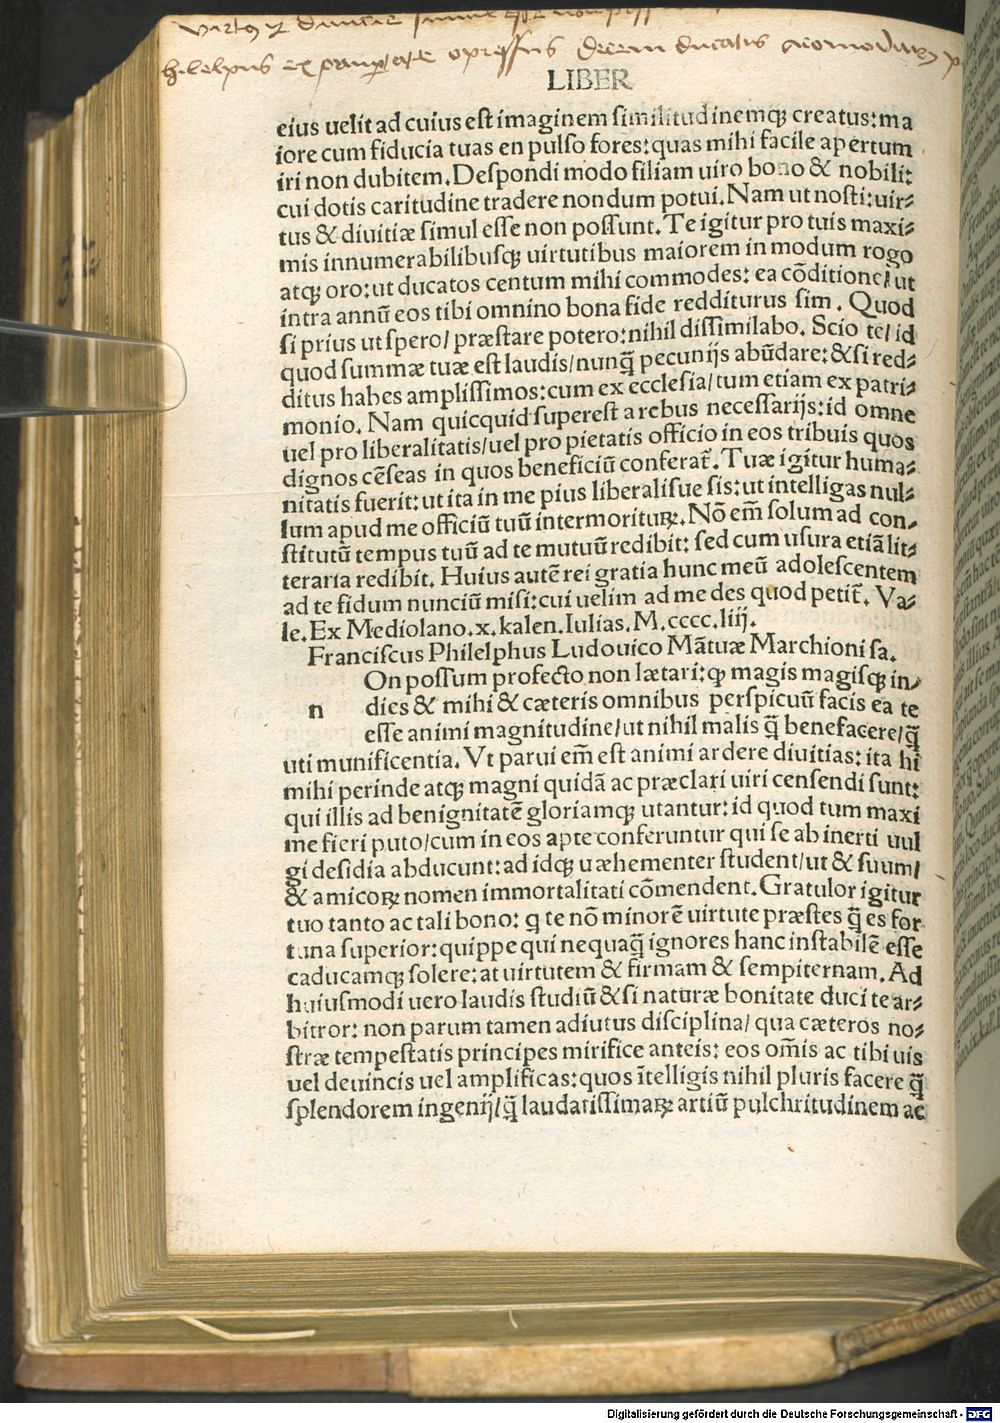 virtus et divitiae simul esse non poss
philelphus ex paupertate opressus decem ducatus acomodatum
LIBER
eius uelit ad cuius est imaginem similitudinemqꝫ creatus: ma
iore cum fiducia tuas en pulso fores: quas mihi facile apertum
iri non dubitem. Despondi modo filiam uiro bono & nobili:
cui dotis caritudine tradere nondum potui. Nam ut nosti: uir⸗
tus & diuitiæ simul esse non possunt. Te igitur pro tuis maxi⸗
mis innumerabilibusqꝫ uirtutibus maiorem in modum rogo
atqꝫ oro: ut ducatos centum mihi commodes: ea cōditione/ ut
intra annū eos tibi omnino bona fide redditurus sim. Quod
si prius ut spero/ præstare potero: nihil dissimilabo. Scio te/ id
quod summæ tuæ est laudis/ nunq̃ pecunijs abūdare: & si red⸗
ditus habes amplissimos: cum ex ecclesia/ tum etiam ex patri⸗
monio. Nam quicquid superest a rebus necessarijs: id omne
uel pro liberalitatis/ uel pro pietatis officio in eos tribuis quos
dignos cēseas in quos beneficiū conferat̃. Tuæ igitur huma⸗
nitatis fuerit: ut ita in me pius liberalisue sis: ut intelligas nul⸗
lum apud me officiū tuū intermorituꝝ. Nō em̃ solum ad con⸗
stitutū tempus tuū ad te mutuū redibit: sed cum usura etiā lit⸗
teraria redibit. Huius autē rei gratia hunc meū adolescentem
ad te fidum nunciū misi: cui uelim ad me des quod petit̃. Va⸗
le. Ex Mediolano. x. kalen. Iulias. M. cccc. liij.
Franciscus Philelphus Ludouico Mātuæ Marchioni sa.
On possum profecto non lætari: ꝙ magis magisqꝫ in⸗
n dies & mihi & cæteris omnibus perspicuū facis ea te
esse animi magnitudine/ ut nihil malis q̃ benefacere/ q̃
uti munificentia. Vt parui em̃ est animi ardere diuitias: ita hi
mihi perinde atqꝫ magni quidā ac præclari uiri censendi sunt:
qui illis ad benignitatē gloriamqꝫ utantur: id quod tum maxi
me fieri puto/ cum in eos apte conferuntur qui se ab inerti uul
gi desidia abducunt: ad idqꝫ uæhementer student/ ut & suum/
& amicoꝝ nomen immortalitati cōmendent. Gratulor igitur
tuo tanto ac tali bono: ꝙ te nō minorē uirtute præstes q̃ es for
tuna superior: quippe qui nequaq̃ ignores hanc instabilē esse
caducamqꝫ solere: at uirtutem & firmam & sempiternam. Ad
huiusmodi uero laudis studiū & si naturæ bonitate duci te ar⸗
bitror: non parum tamen adiutus disciplina/ qua cæteros no⸗
stræ tempestatis principes mirifice anteis: eos om̃is ac tibi uis
uel deuincis uel amplificas: quos ītelligis nihil pluris facere q̃
splendorem ingenij/ q̃ laudatissimaꝝ artiū pulchritudinem ac
Digitalisierung gefördert durch die Deutsche Forschungsgemeinschaft - DFG